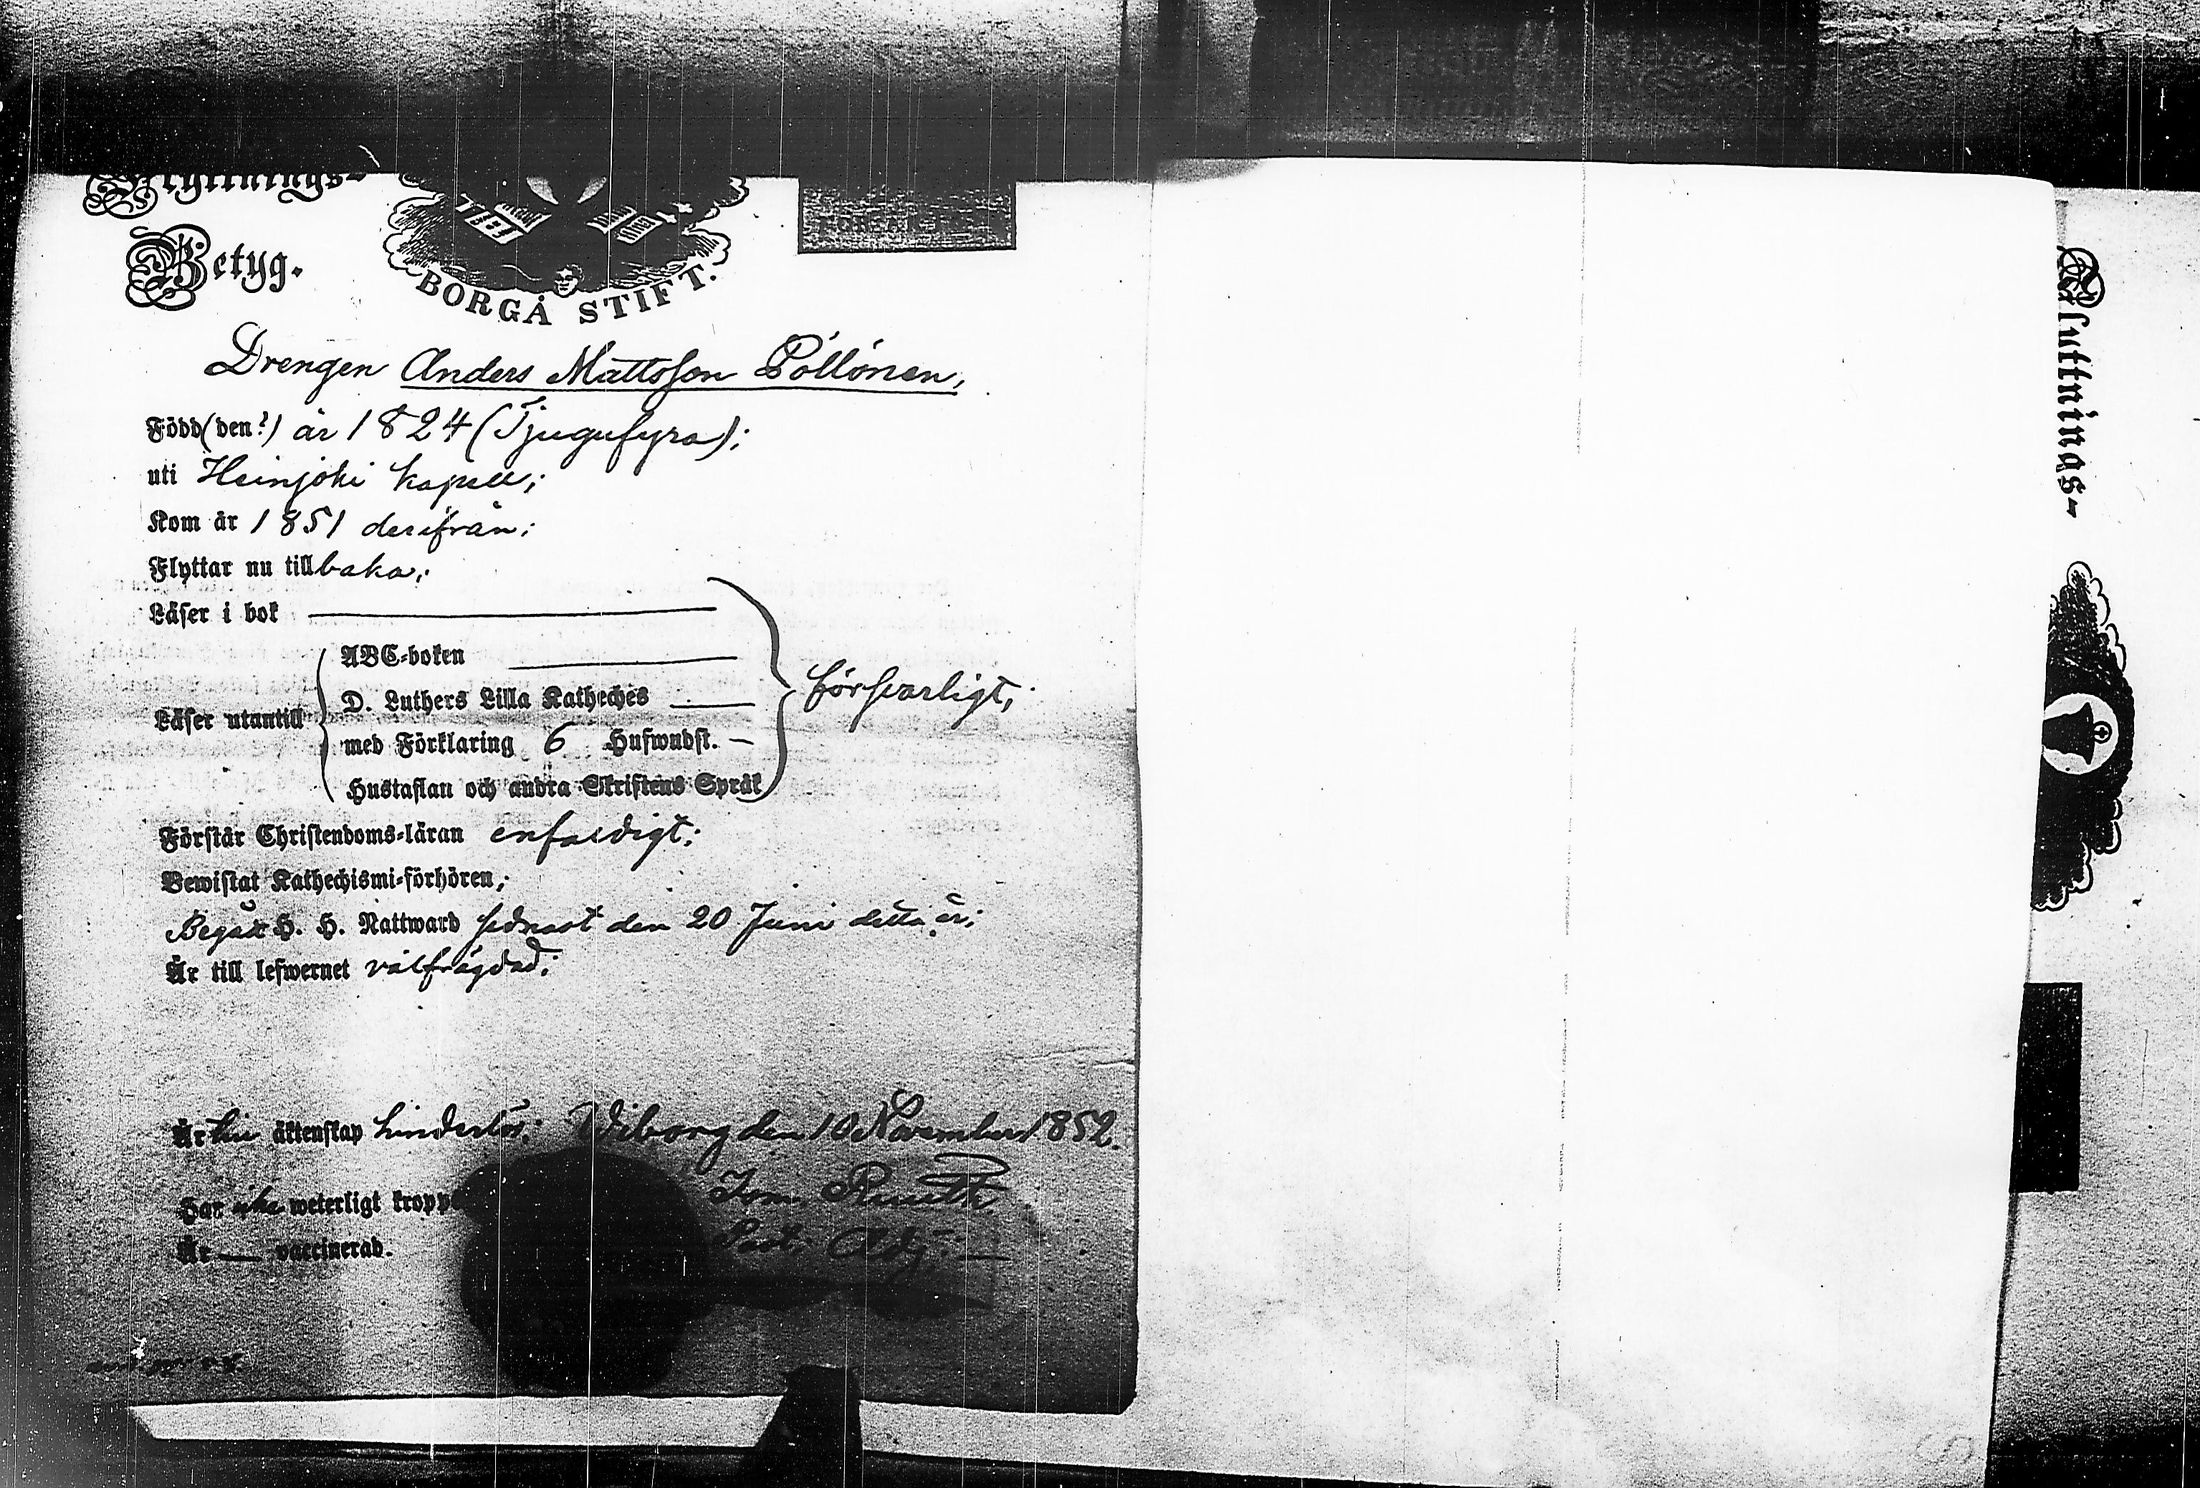 Flyttnings-
Betyg.
BORGÅ STIFT.
Drengen Anders Mattsson Pöllönen,
Född (den?) år 1824 (Tjugufyra);
uti Heinjoki kapell;
Kom år 1851 derifrån;
Flyttar nu tillbaka;
Läser i bok
ABC-boken
D. Luthers Lilla Katheches
Läser utantill
försvarligt;
med Förklaring 6 Hufwudst.
Hustaflan och andra Skriftens Språk
Förstår Christendoms-läran enfaldigt;
Bewistat Kathechismi-förhören;
Begått H. H. Nattward sednast den 20 Juni detta år;
Är till lefwernet välfrägdad;
Är till äktenskap hinderlös; Wiborg den 10 November 1852.
Har icke weterligt kropps
Ruuth
Past. Adj.
Är — vaccinerad.
Flyttnings-